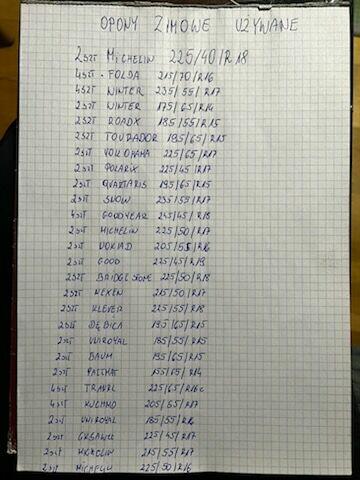 OPONY ZIMOWE UŻYWANE
2SZT MICHELIN 225/40/R18
4SZT. FOLDA 215/70/R16
4SZT WINTER 235/55/R17
2SZT WINTER 175/65/R14
2SZT ROADX 185/55/R15
2SZT TOURADOR 195/65/R15
2SZT YOKOHAMA 225/65/R17
2SZT POLARIX 225/45/R17
2SZT QUARTARIS 195/65/R15
2SZT SNOW 235/55/R17
4SZT GOODYEAR 245/45/R18
2SZT MICHELIN 225/50/R17
2SZT NOKIAD 205/55/R16
2SZT GOOD 225/45/R19
2SZT BRIDGESTONE 225/50/R18
2SZT NEXEN 215/50/R17
2SZT KLEVER 225/55/R18
2SZT DĘBICA 195/65/R15
2SZT UNIROYAL 185/55/R15
2SZT BAUM 195/65/R15
2SZT 155/65/R14
4SZT 225/65/R16C
4SZT KUCHMO 205/55/R17
2SZT UNIROYAL 185/55/R16
2SZT 225/45/R17
2SZT 215/55/R17
2SZT MICHELIN 225/50/R16